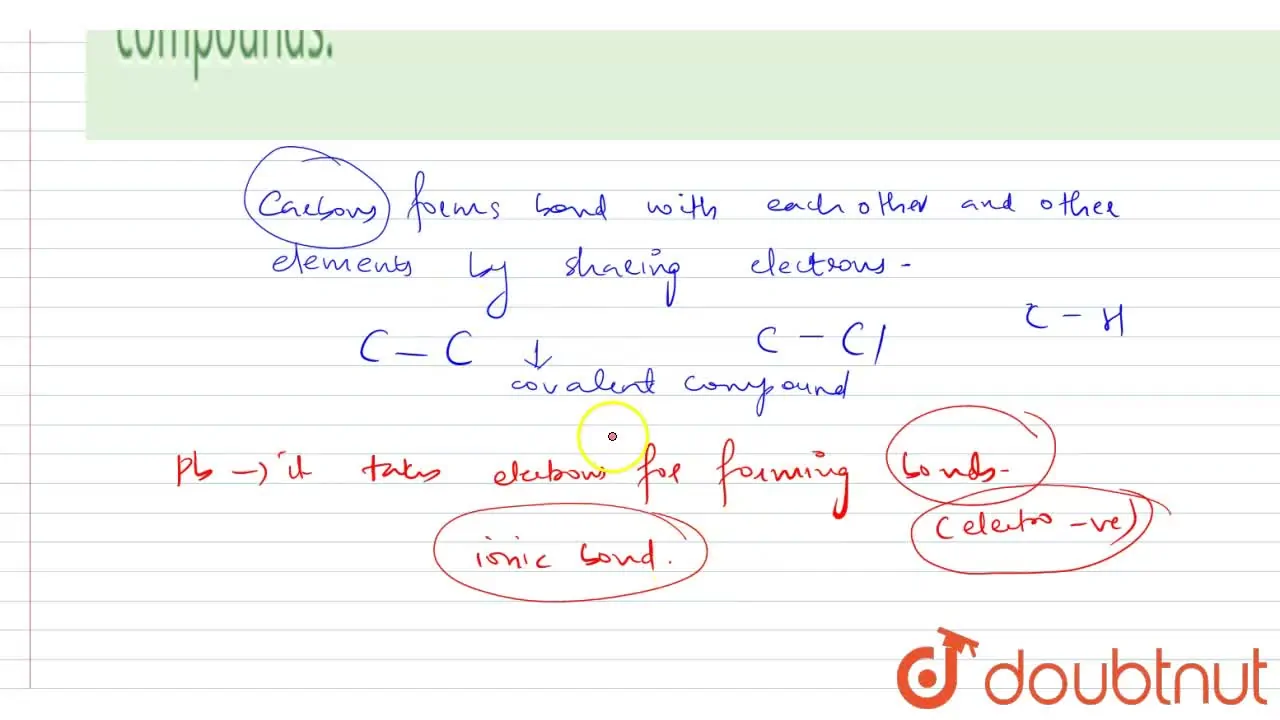 compounds.
Carbons forms bond with each other and other
elements by sharing electrons -
C - C C - Cl C - H
↓
covalent compound
Pb → it takes elecbons for forming bonds-
(electro -ve)
ionic bond.
doubtnut